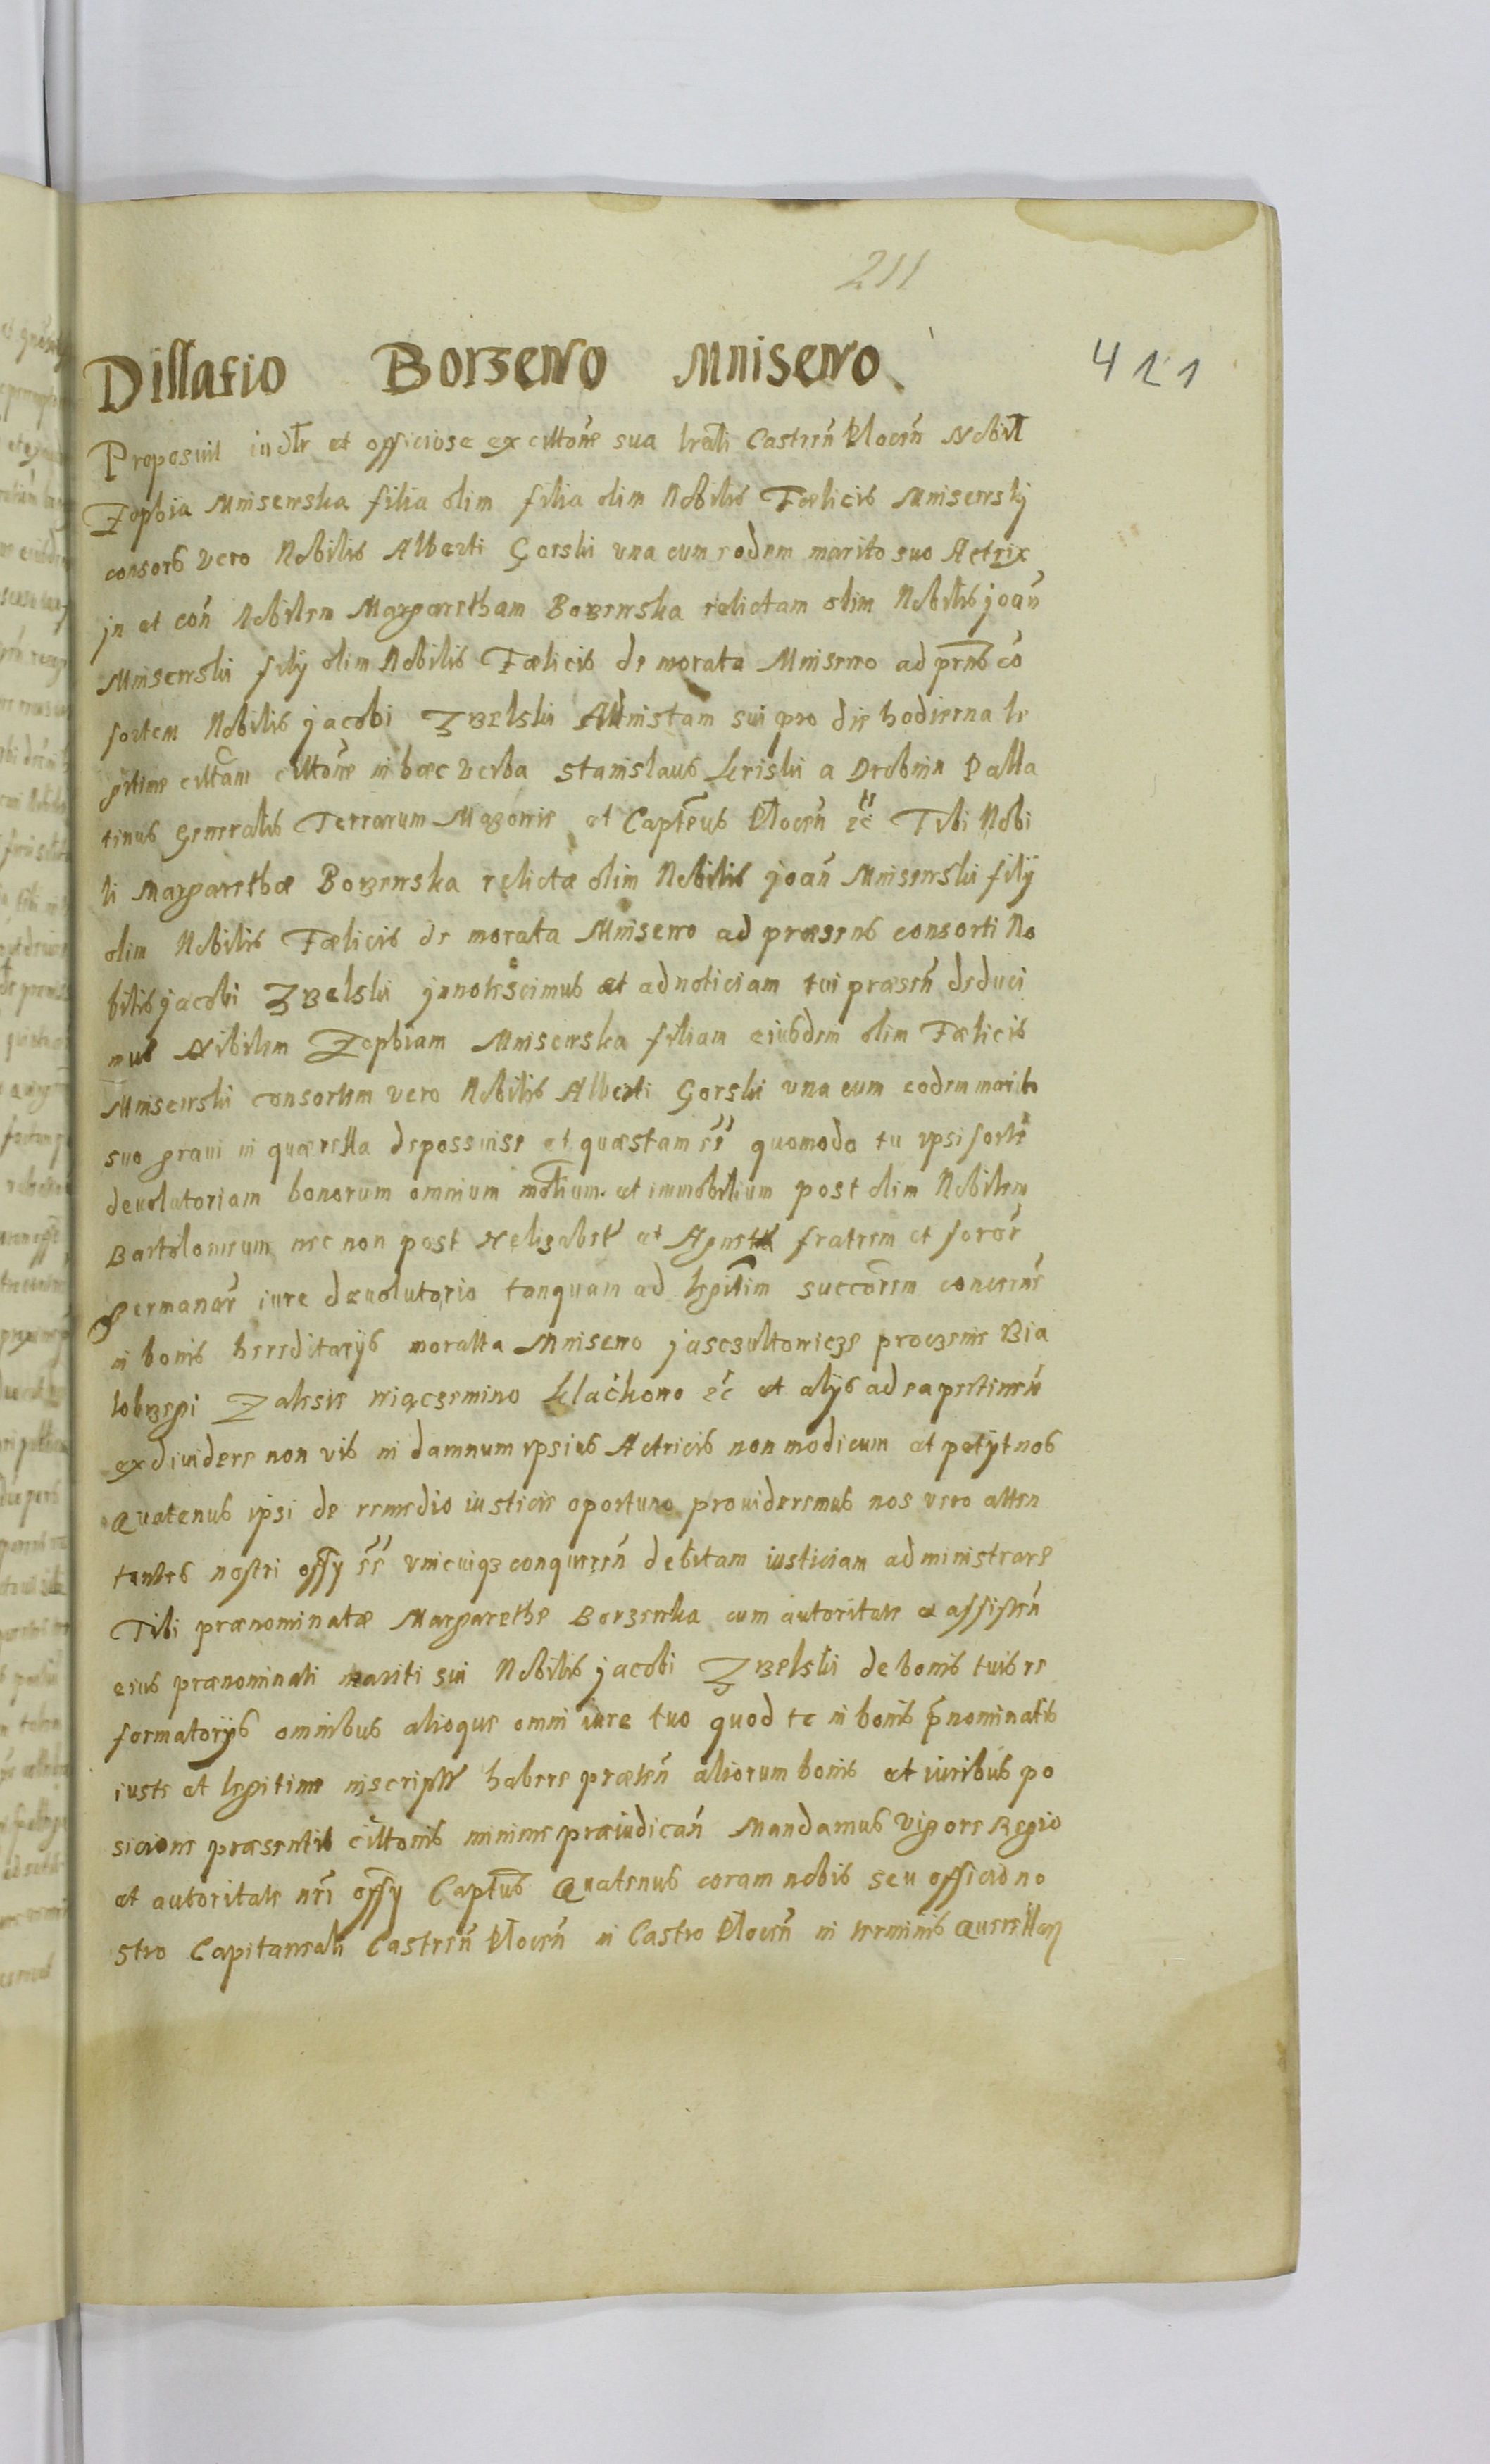 211
Dillatio Borzewo Mnisewo
421
Proposuit iudlr et officiose ex cittone sua lrali Castren Plocen Nobil
Zophia Mnisewska filia olim filia olim Nobilis Fælicis Mnisewskj
consors vero Nobilis Alberti Gorski vna cum eodem marito suo Actrix
jn et con Nobilem Margaretham Borzewska relictam olim Nobilis joan
Mnisewski filij olim Nobilis Fælicis de morata Mnisewo ad prns co
sortem Nobilis jacobi Zbelski sui pro die hodierna le
gitime cittam cittone in hæc verba Stanislaus Kriski a Drobnin Palla
tinus Generalis Terrarum Mazovie et Capteus Plocen ec Tibi Nobi
li Margarethæ Borzewska relictæ olim Nobilis joan Mnisewski filij
olim Nobilis Fælicis de morata Mnisewo ad præsens consorti No
bilis jacobi Zbelski jnnotescimus et ad noticiam tui præsen deduci
mus Nibilem Zophiam Mnisewska filiam eiusdem olim Fælicis
Mnisewski consortem vero Nobilis Alberti Gorski vna cum eodem marito
suo graui in quærella depossuise et quæstam ee quomodo tu ipsi sorte
deuolutoriam bonorum omnium motium et immobilium post olim Nobilem
Bartolomeum nec non post Helizabet et fratrem et soror
germanar iure deuolutorio tanquam ad legitim succorem concerne
in bonis hereditarijs moratta Mnisewo jasczultowicze proczenie Bia
lobrzegi Zalesie wiączemino Klachowo ec et alijs ad ea pertinen
exdiuidere non vis in damnum ipsius Actricis non modicum et petijt nos
Quatenus ipsi de remedio iusticie oportuno prouideremus nos vero atten
tentes nostri offy ee vnicuiqz conqueren debitam iusticiam administrare
Tibi prænominatæ Margarethe Borzewka cum autoritate et assisten
eius prænominati mariti sui Nobilis jacobi Zbelski de bonis tuis re
formatorijs omnibus alioque omni iure tuo quod te in bonis pnominatis
iuste et legitime inscript habere præten aliorum bonis et iuribus po
sicione præsentis cittonis minime præiudican Mandamus Vigore Regio
et autoritate nri offy Captus Quatenus coram nobis seu officio no
stro Capitaneali Castren Plocen in Castro Plocen in terminis Querellar